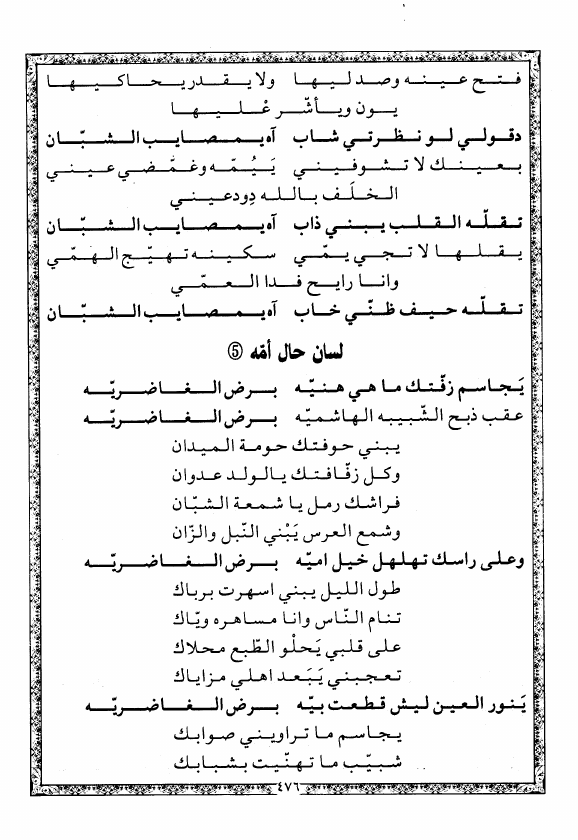 فتح عينه وصد ليها ولا يقدر يحاكيها
يون ويأشّر عْليها
دقولي لو نظرتي شاب آه يمصايب الشبّان
بعينك لا تشوفيني يَيُمّه وغمّضي عيني
الخلَف بالله دِودعيني
تقلّه القلب يبني ذاب آه يمصايب الشبّان
يقلها لا تجي يمّي سكينه تهيّج الهمّي
وانا رايح فدا العمّي
تقلّه حيف ظنّي خاب آه يمصايب الشبّان
لسان حال أمّه ⑤
يَجاسم زفّتك ما هي هنيّه برض الغاضريّه
عقب ذبح الشّبيبه الهاشميّه برض الغاضريّه
يبني حوفتك حومة الميدان
وكل زفّافتك يالولد عدوان
فراشك رمل يا شمعة الشبّان
وشمع العرس يَبْني النّبل والزّان
وعلى راسك تهلهل خيل اميّه برض الغاضريّه
طول الليل يبني اسهرت برباك
تنام النّاس وانا مساهره ويّاك
على قلبي يَحلْو الطّبع محلاك
تعجبني يَبَعد اهلي مزاياك
يَنور العين ليش قطعت بيّه برض الغاضريّه
يجاسم ما تراويني صوابك
شبيّب ما تهنّيت بشبابك
٤٧٦